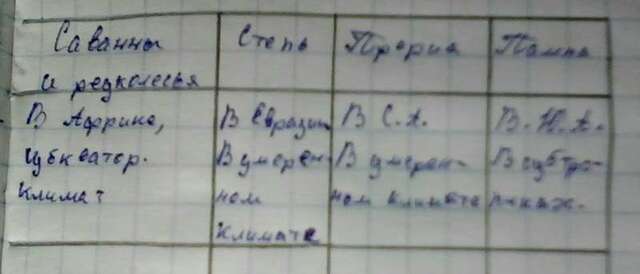 Саванны
и редколесья
Степь
Прерия
Пампа
В Африке,
субкватор.
климат
В Евразии
В умерен-
ном
климате
В С.А.
В умерен-
ном климате
В Ю.А.
В субтро-
пиках.